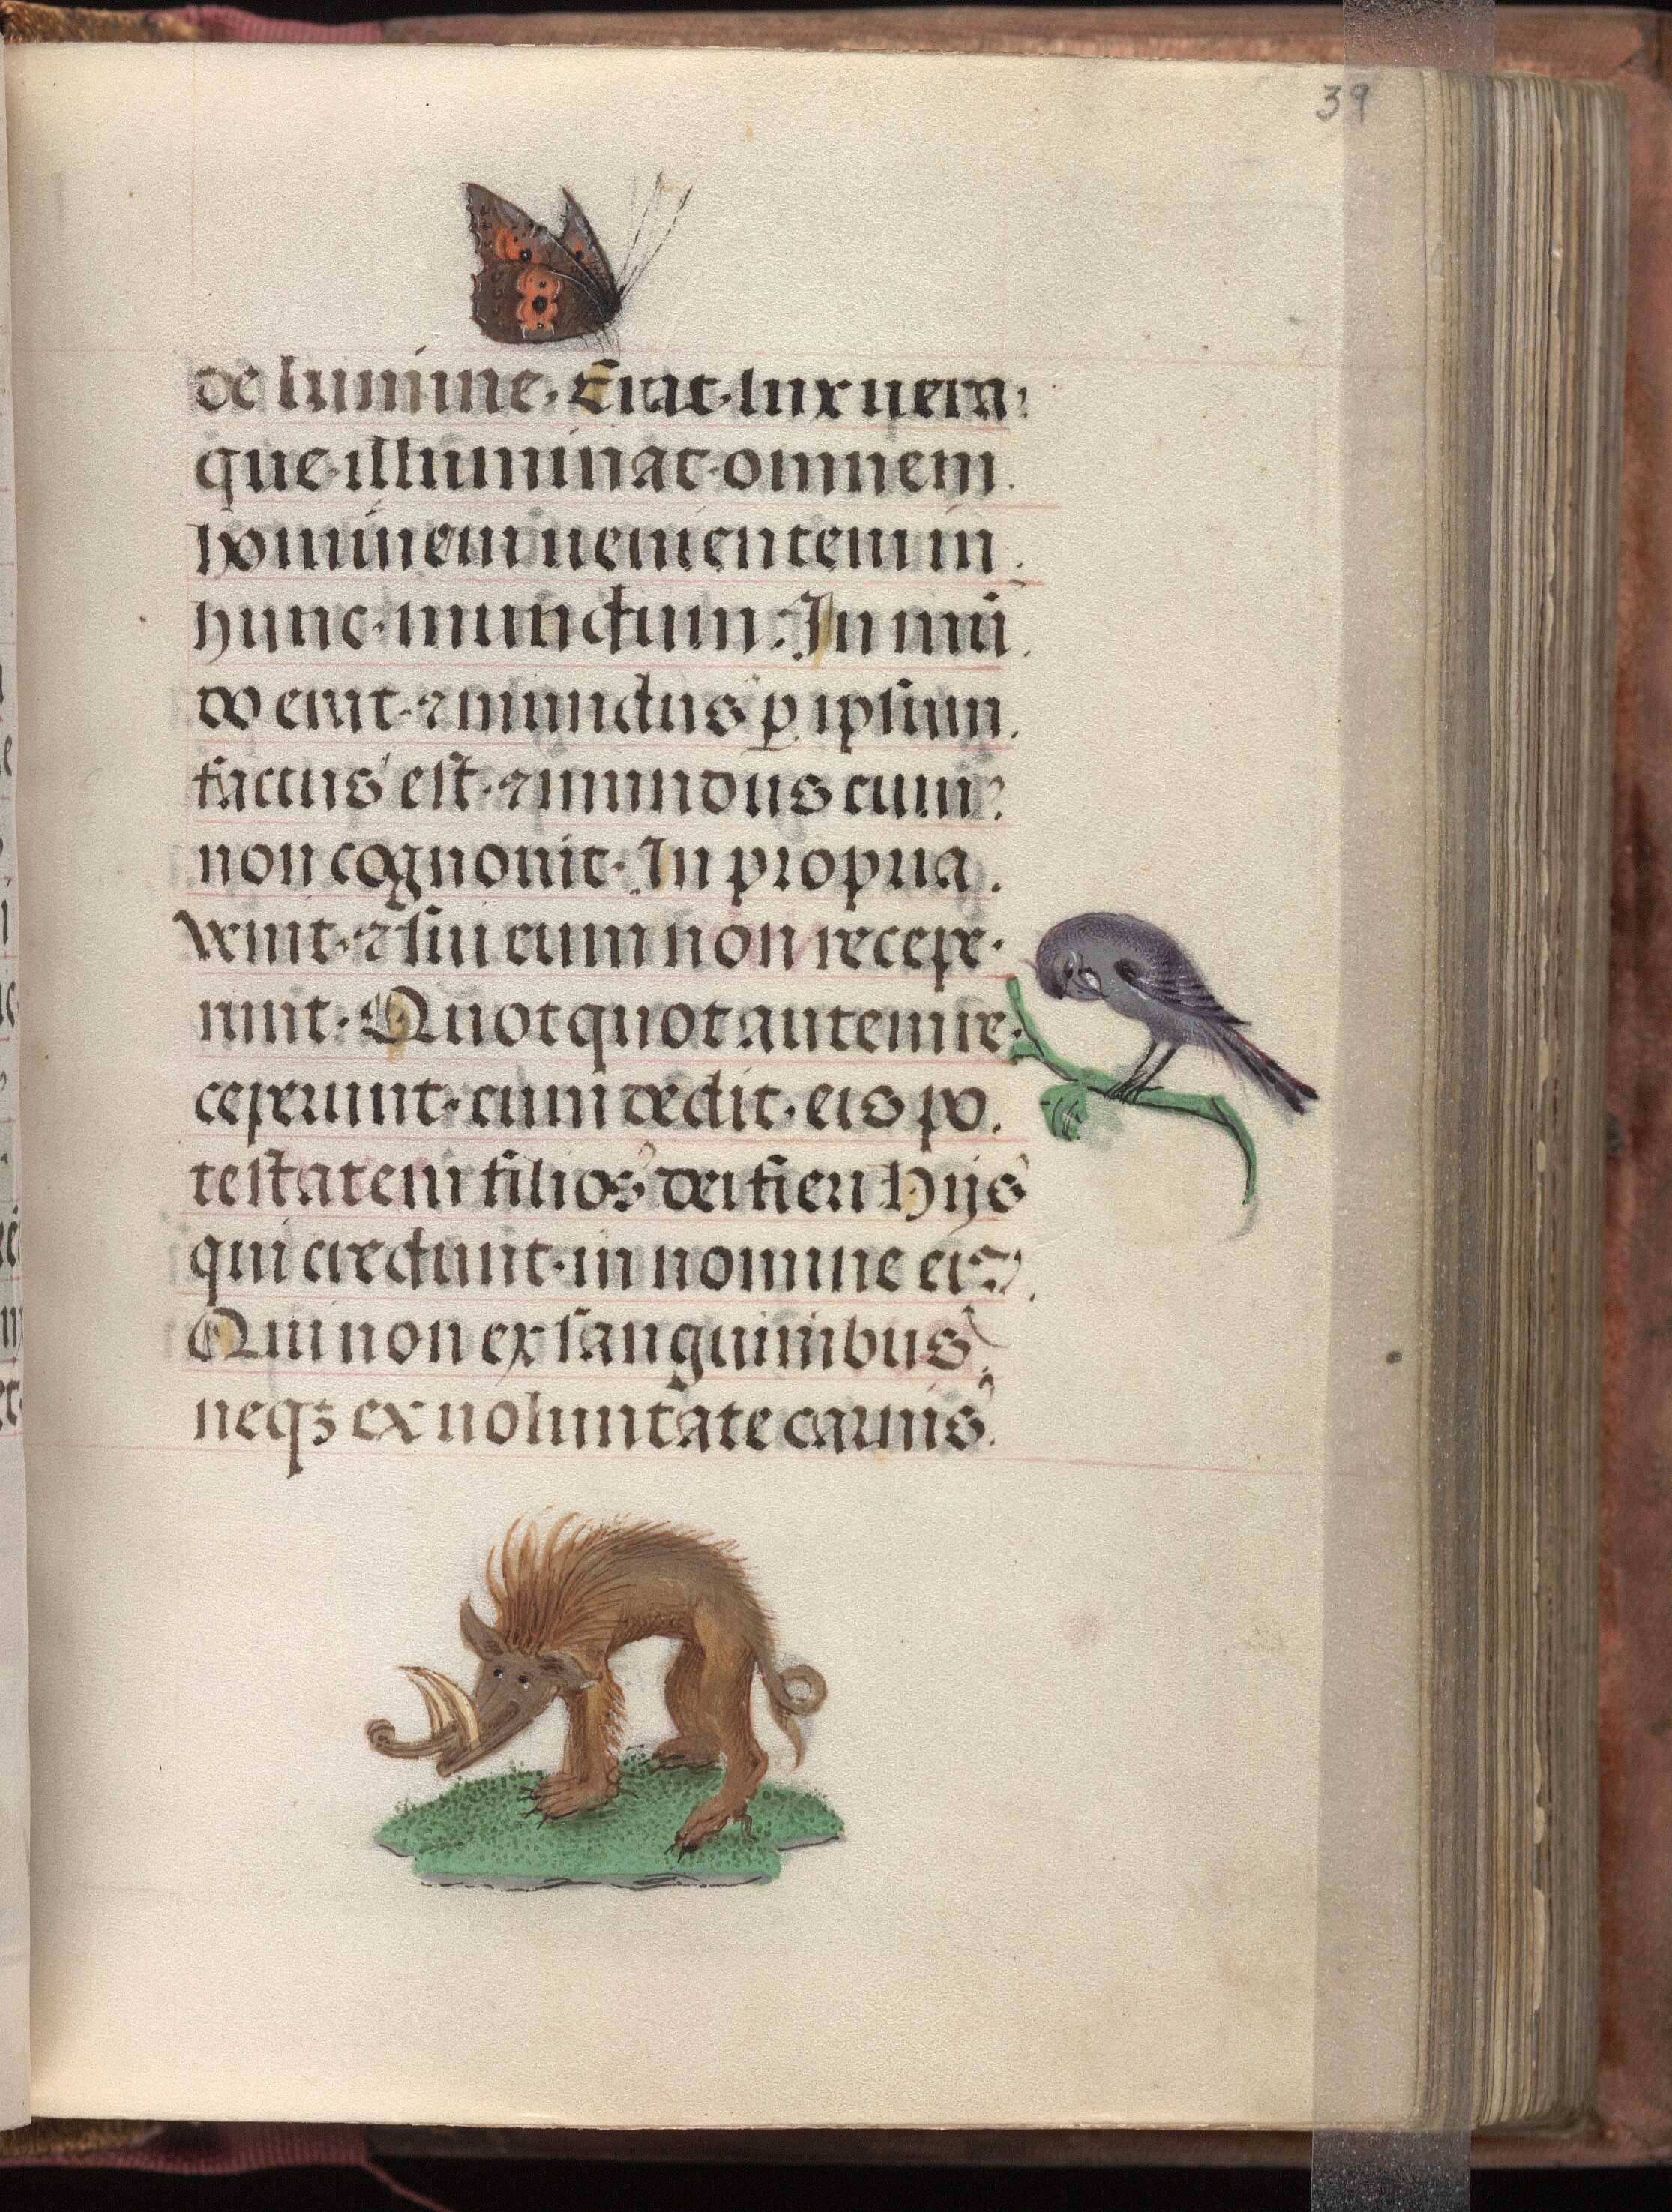 39
de lumine. Erat lux uera
que illuminat omnem
hominem uenientem in
hunc mundum. In mū
do erat ⁊ mundus ꝑ ipsum
factus est ⁊ mundus eum
non cognouit. In propria
venit ⁊ sui eum non recepe-
runt. Quotquot autem re-
ceperunt eum dedit eis po
testatem filios dei fieri hijs
qui credunt in nomine eiꝰ.
Qui non ex sanguinibus
neqꝫ ex uoluntate carnis